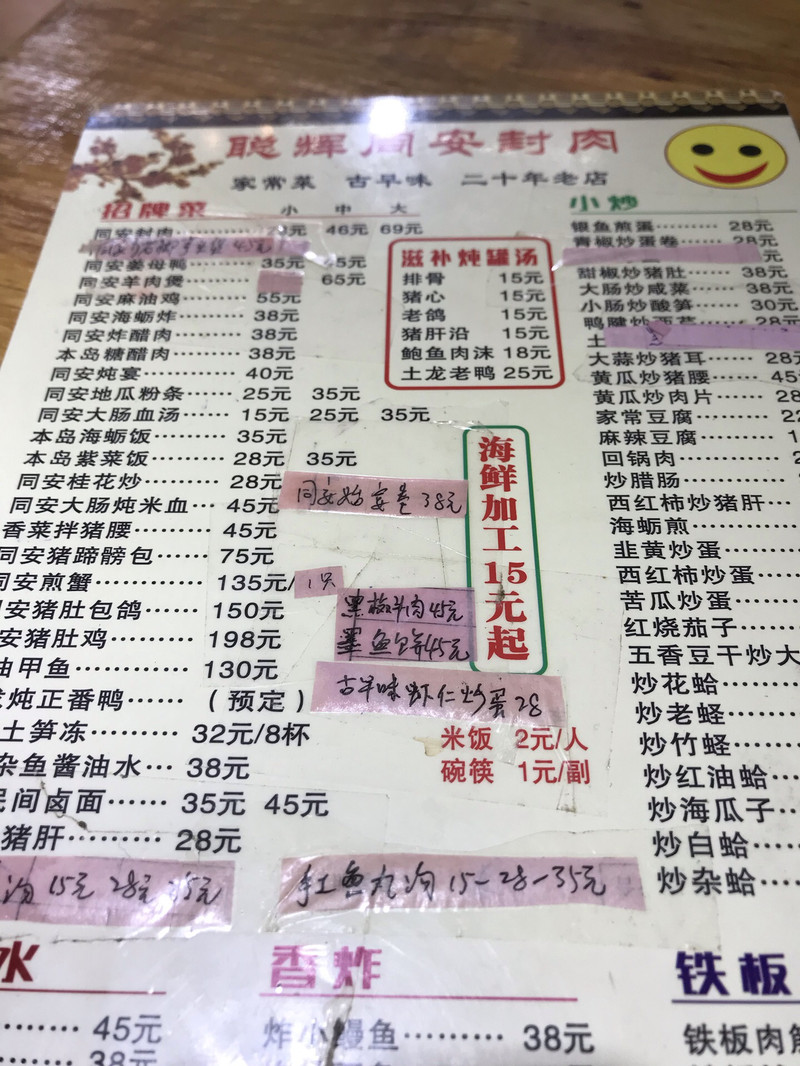 聪辉同安封肉
家常菜 古早味 二十年老店
招牌菜 小 中 大
同安封肉 46元 69元
同安姜母鸭 35元 45元
同安羊肉煲 65元
同安麻油鸡 55元
同安海蛎炸 38元
同安炸醋肉 38元
本岛糖醋肉 38元
同安炖宴 40元
同安地瓜粉条 25元 35元
同安大肠血汤 15元 25元 35元
本岛海蛎饭 35元
本岛紫菜饭 28元 35元
同安桂花炒 28元
同安大肠炖米血 45元
香菜拌猪腰 45元
同安猪蹄膀包 75元
同安煎蟹 135元/1只
安猪肚包鸽 150元
安猪肚鸡 198元
油甲鱼 130元
炖正番鸭 (预定)
土笋冻 32元/8杯
杂鱼酱油水 38元
民间卤面 35元 45元
猪肝 28元
汤 15元 28元 35元
滋补炖罐汤
排骨 15元
猪心 15元
老鸽 15元
猪肝沿 15元
鲍鱼肉沫 18元
土龙老鸭 25元
海鲜加工15元起
38元
黑椒牛肉45元
墨鱼饼45元
古早味虾仁炒蛋28
米饭 2元/人
碗筷 1元/副
手工鱼丸汤 15-28-35元
小炒
银鱼煎蛋 28元
青椒炒蛋卷 28元
元
甜椒炒猪肚 38元
大肠炒咸菜 38元
小肠炒酸笋 30元
鸭腱炒西芹 28元
土
大蒜炒猪耳 28
黄瓜炒猪腰 45
黄瓜炒肉片 28
家常豆腐 22
麻辣豆腐 1
回锅肉
炒腊肠
西红柿炒猪肝
海蛎煎
韭黄炒蛋
西红柿炒蛋
苦瓜炒蛋
红烧茄子
五香豆干炒大
炒花蛤
炒老蛏
炒竹蛏
炒红油蛤
炒海瓜子
炒白蛤
炒杂蛤
水
45元
38元
香炸
炸小鳗鱼 38元
铁板
铁板肉